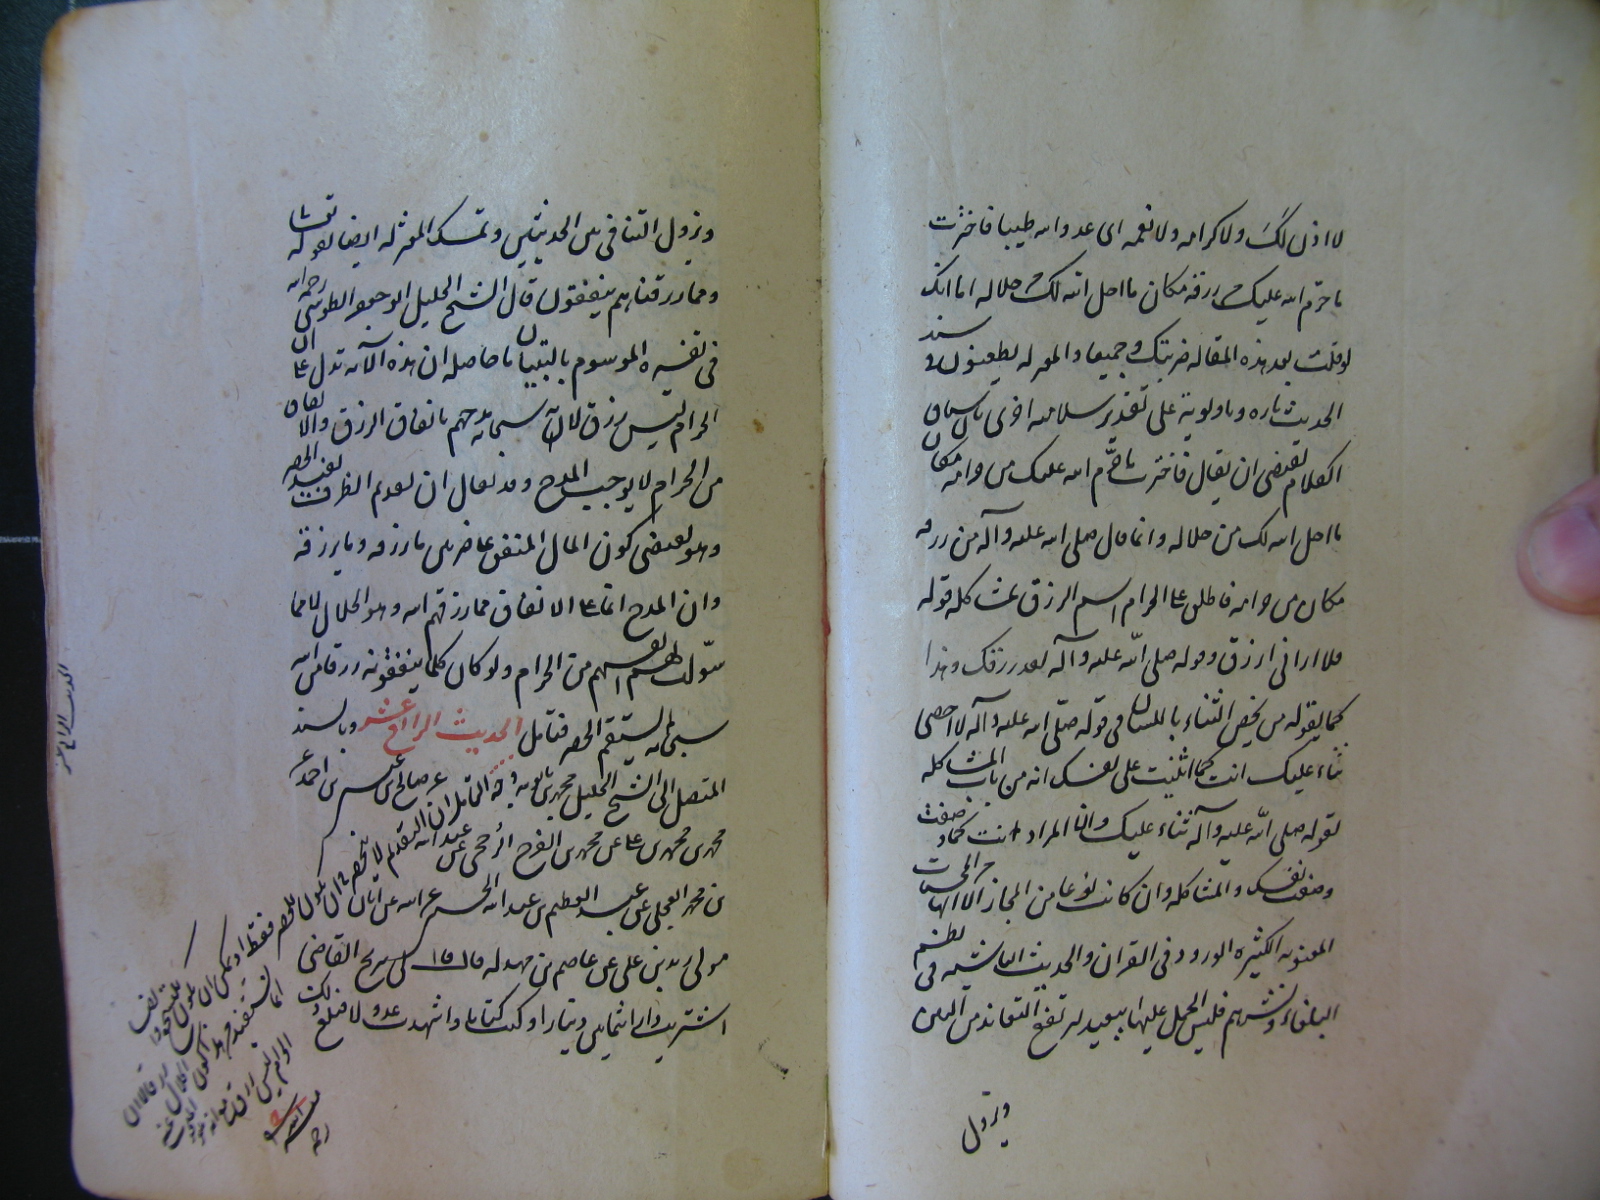 لا اذن لك ولا كرامه ولا نعمه اى عدو الله طيبا فاخترت
ما حرّم الله عليك من رزقه مكان ما احل الله لك من حلاله اما انك
لو قلت بعد هذه المقاله ضربتك وجيعا والمعتزله يطعنون فى سند
الحديث تاره وياولونه على تقدير سلامته اخرى بان سياق
الكلام يقتضى ان يقال فاخترت ما حرّم الله عليك من حرامه مكان
ما احل الله لك من حلاله وانما قال صلى الله عليه وآله من رزقه
مكان من حرامه فاطلق على الحرام اسم الرزق لمشاكله قوله
فلا ارانى ارزق وقوله صلى الله عليه وآله لقد رزقك وهذا
كما يقوله من يخص الثناء باللسان فى قوله صلّى الله عليه وآله لا احصى
ثناء عليك انت كما اثنيت على نفسك انه من باب المشاكله
لقوله صلى الله عليه وآله ثناء عليك وانما المراد انت كما وصفت
وصفت نفسك والمشاكله وان كانت نوعا من المجاز الا انها من المحسنات
المعنويه الكثيره الورود فى القران والحديث الفاشيه فى نظم
البلغاء ونثرهم فليس الحمل عليها ببعيد ليرتفع التعاند من البين
ويزول
ويزول التنافى بين الحديثين وتمسك المعتزله ايضا بقوله تعالى
ومما رزقناهم ينفقون قال الشيخ الجليل ابو جعفر الطوسى رحمه الله
فى تفسيره الموسوم بالتبيان ما حاصله ان هذه الآيه تدل على ان
الحرام ليس رزقا لانه سبحانه مدحهم بانفاق الرزق والانفاق
من الحرام لا يوجب المدح وقد يقال ان تقديم الظرف يفيد الحصر
وهو يقتضى كون المال المنفق على ضربين ما رزقه وما لم يرزقه
وان المدح انما على الانفاق مما رزقهم الله وهو الحلال لا مما
سوّلت لهم انفسهم من الحرام ولو كان كلما ينفقونه رزقا من الله
سبحانه لم يستقم الحصر فتامل الحديث الرابع عشر وبالسند
المتصل الى الشيخ الجليل محمد بن بابويه عن صالح بن عيسى بن احمد عن
محمد بن محمد بن على عن محمد بن الفرج الرخجى عن عبد الله
بن محمد العجلى عن عبد العظيم بن عبد الله الحسنى عن ابيه عن ابان
مولى زيد بن على عن عاصم بن بهدله قال قال لى شريح القاضى
اشتريت دارا بثمانين دينارا وكتبت كتابا واشهدت عدولا فبلغ ذلك
الحديث الرابع عشر